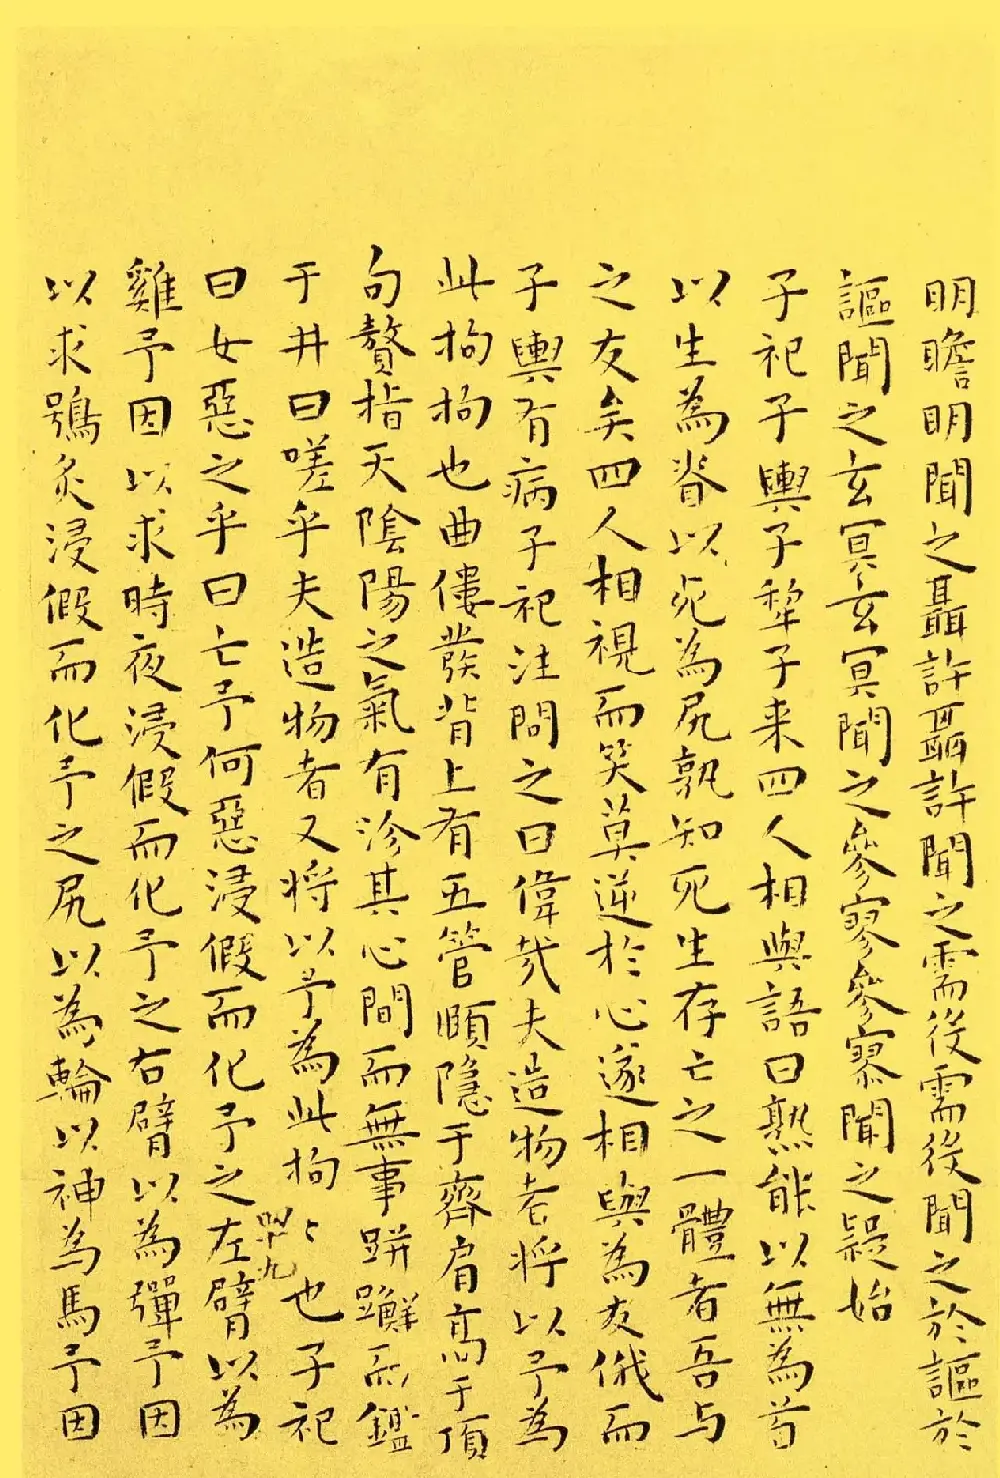 明瞻明聞之聶許聶許聞之需役需役聞之於謳於
謳聞之玄冥玄冥聞之參寥參寥聞之疑始
子祀子輿子犂子来四人相與語曰孰能以無為首
以生為脊以死為尻孰知死生存亡之一體者吾与
之友矣四人相視而笑莫逆於心遂相與為友俄而
子輿有病子祀往問之曰偉哉夫造物者將以予為
此拘拘也曲僂發背上有五管頤隱于齊肩高于頂
句贅指天陰陽之氣有沴其心間而無事跰𨇤而鑑
于井曰嗟乎夫造物者又将以予為此拘〻也子祀
曰女惡之乎曰亡予何惡浸假而化予之左臂以為
雞予因以求時夜浸假而化予之右臂以為彈予因
以求鴞炙浸假而化予之尻以為輪以神為馬予因